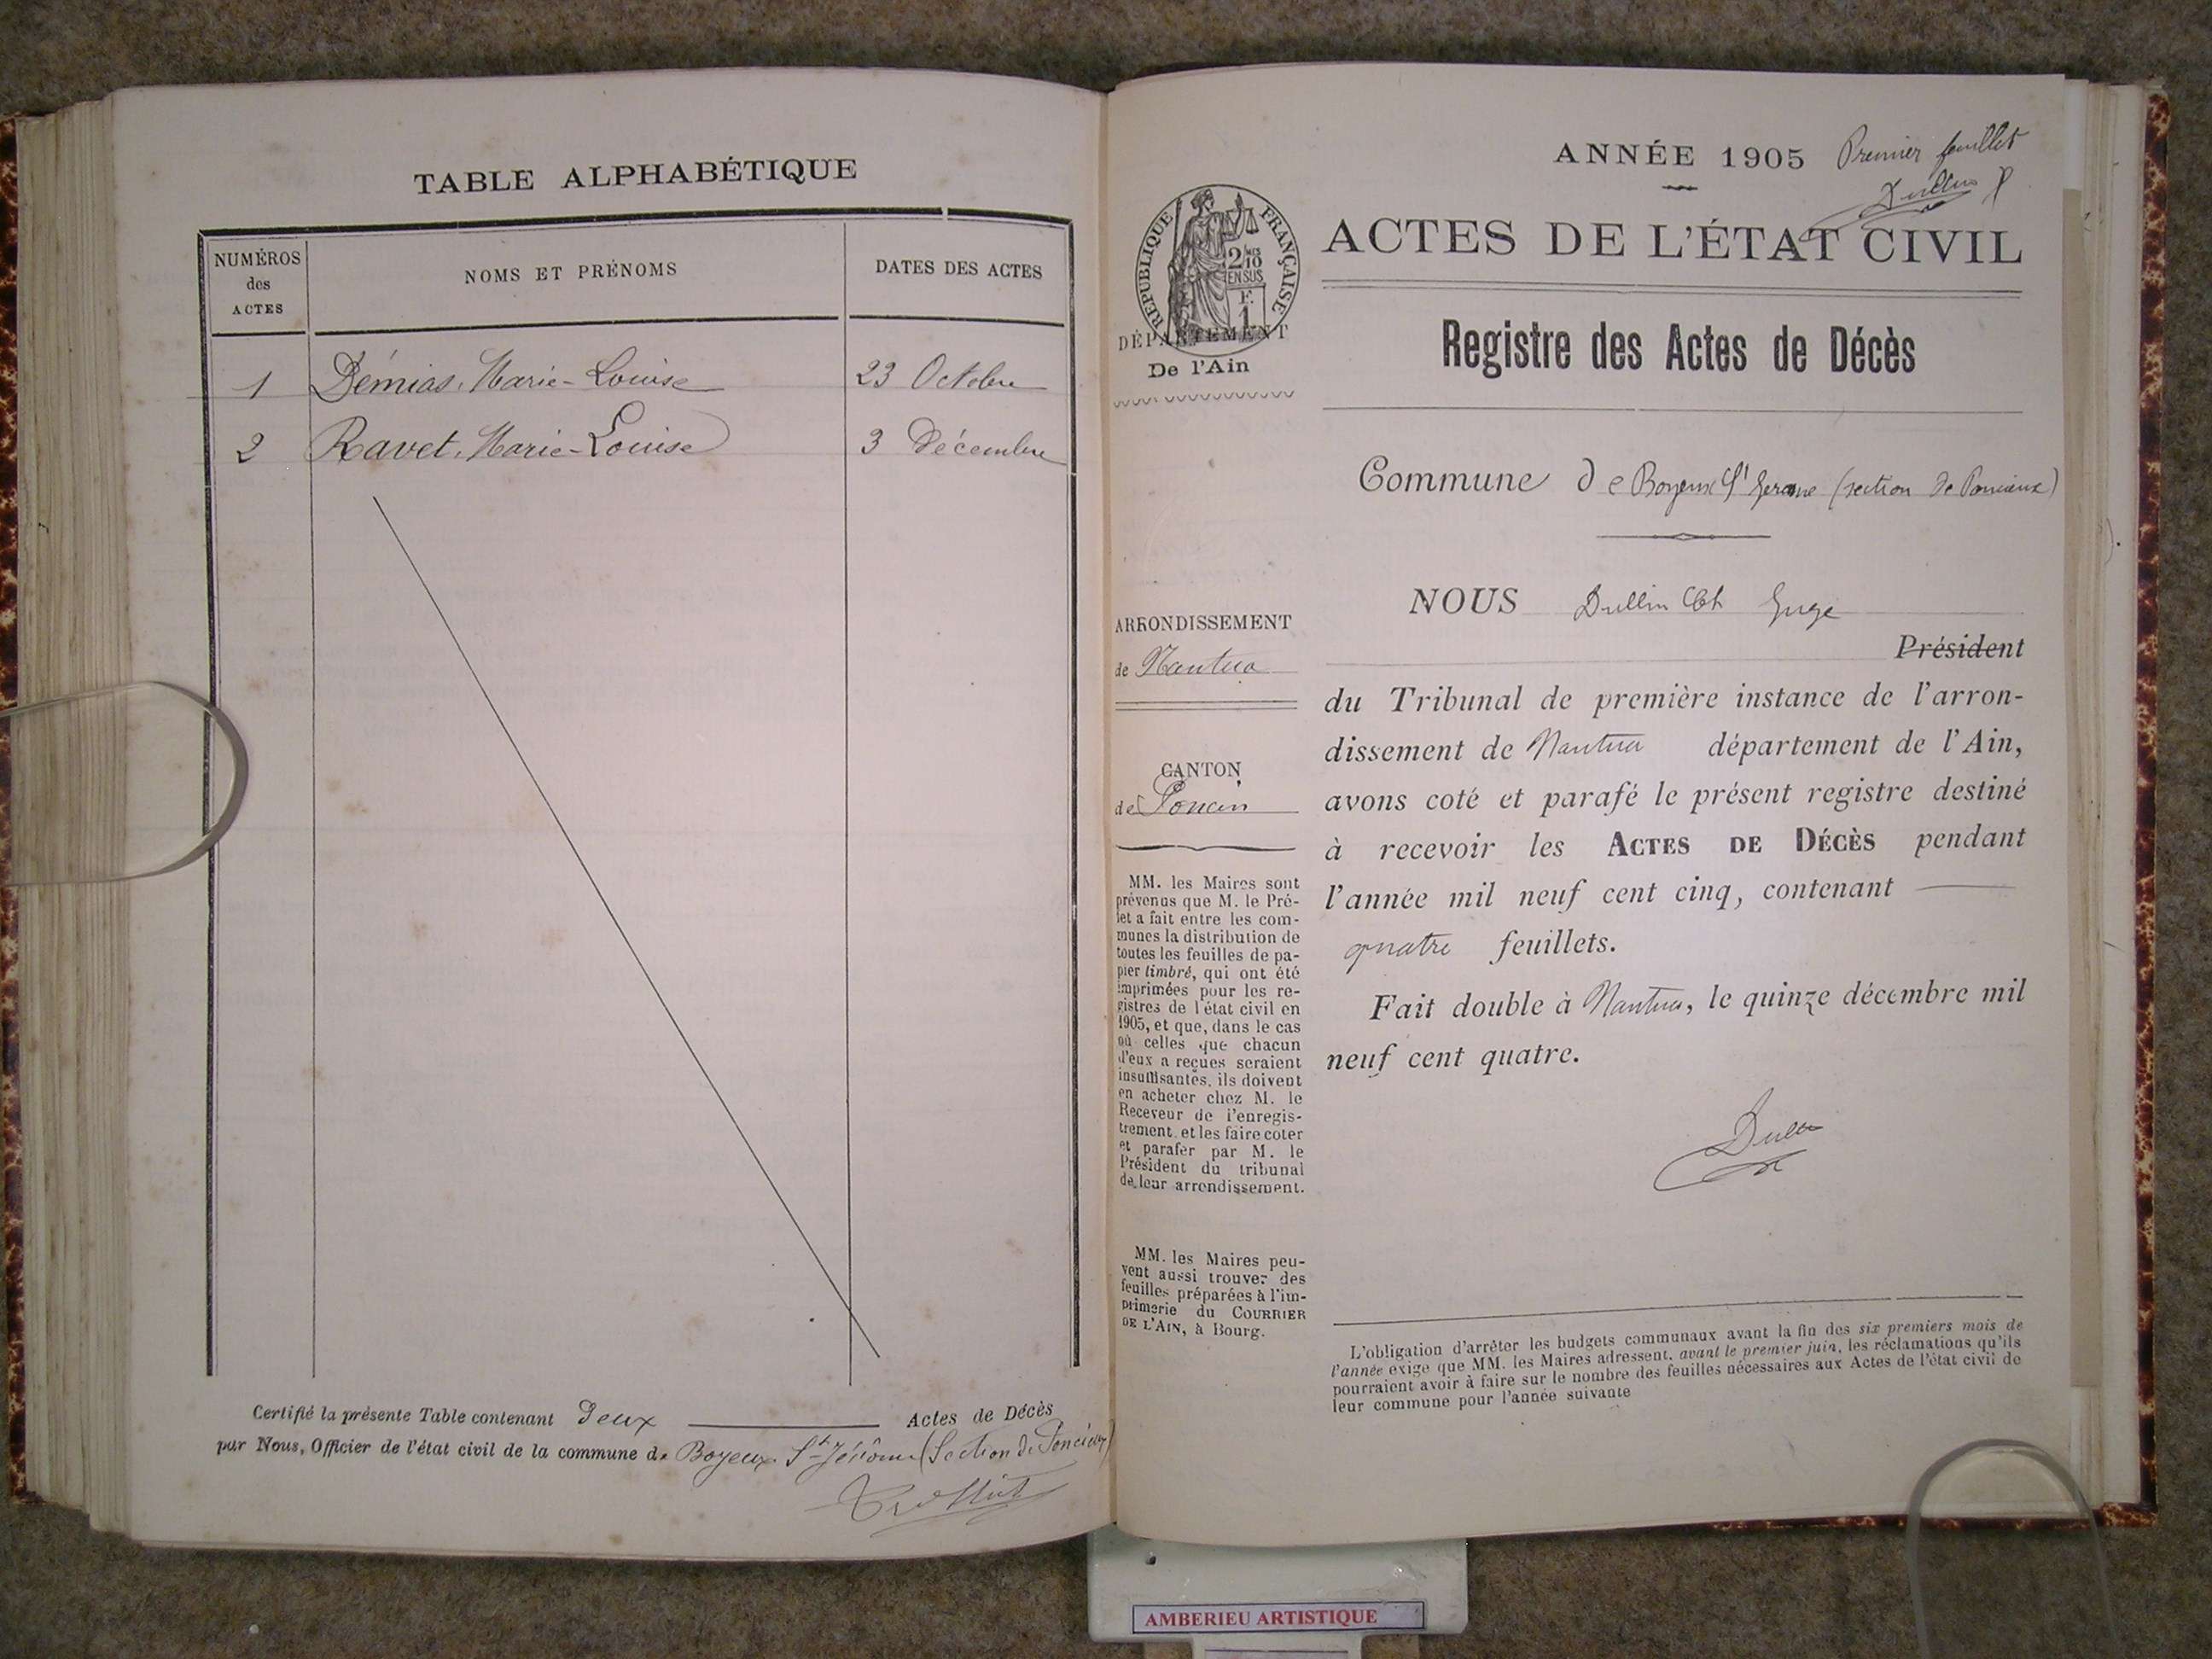 TABLE ALPHABÉTIQUE
NUMÉROS
des
ACTES
NOMS ET PRÉNOMS
DATES DES ACTES
1 Démias, Marie-Louise 23 Octobre
2 Ravet, Marie-Louise 3 Décembre
Certifié la présente Table contenant Deux Actes de Décès
par Nous, Officier de l'état civil de la commune de Boyeux St Jérôme (Section de Poncieux)
ANNÉE 1905 Premier feuillet
Dullin
RÉPUBLIQUE FRANÇAISE
2/10
EN SUS
F.
1
DÉPARTEMENT
De l'Ain
ACTES DE L'ÉTAT CIVIL
Registre des Actes de Décès
Commune de Boyeux St Jerome (section de Poncieux)
ARRONDISSEMENT
de Nantua
CANTON
de Poncin
MM. les Maires sont
prévenus que M. le Pré-
fet a fait entre les com-
munes la distribution de
toutes les feuilles de pa-
pier timbré, qui ont été
imprimées pour les re-
gistres de l'état civil en
1905, et que, dans le cas
où celles que chacun
d'eux a reçues seraient
insuffisantes, ils doivent
en acheter chez M. le
Receveur de l'enregis-
trement et les faire coter
et parafer par M. le
Président du tribunal
de leur arrondissement.
MM. les Maires peu-
vent aussi trouver des
feuilles préparées à l'im-
primerie du COURRIER
DE L'AIN, à Bourg.
NOUS Dullin Juge
Président
du Tribunal de première instance de l'arron-
dissement de Nantua département de l'Ain,
avons coté et parafé le présent registre destiné
à recevoir les ACTES DE DÉCÈS pendant
l'année mil neuf cent cinq, contenant
quatre feuillets.
Fait double à Nantua, le quinze décembre mil
neuf cent quatre.
Dullin
L'obligation d'arrêter les budgets communaux avant la fin des six premiers mois de
l'année exige que MM. les Maires adressent, avant le premier juin, les réclamations qu'ils
pourraient avoir à faire sur le nombre des feuilles nécessaires aux Actes de l'état civil de
leur commune pour l'année suivante
AMBERIEU ARTISTIQUE